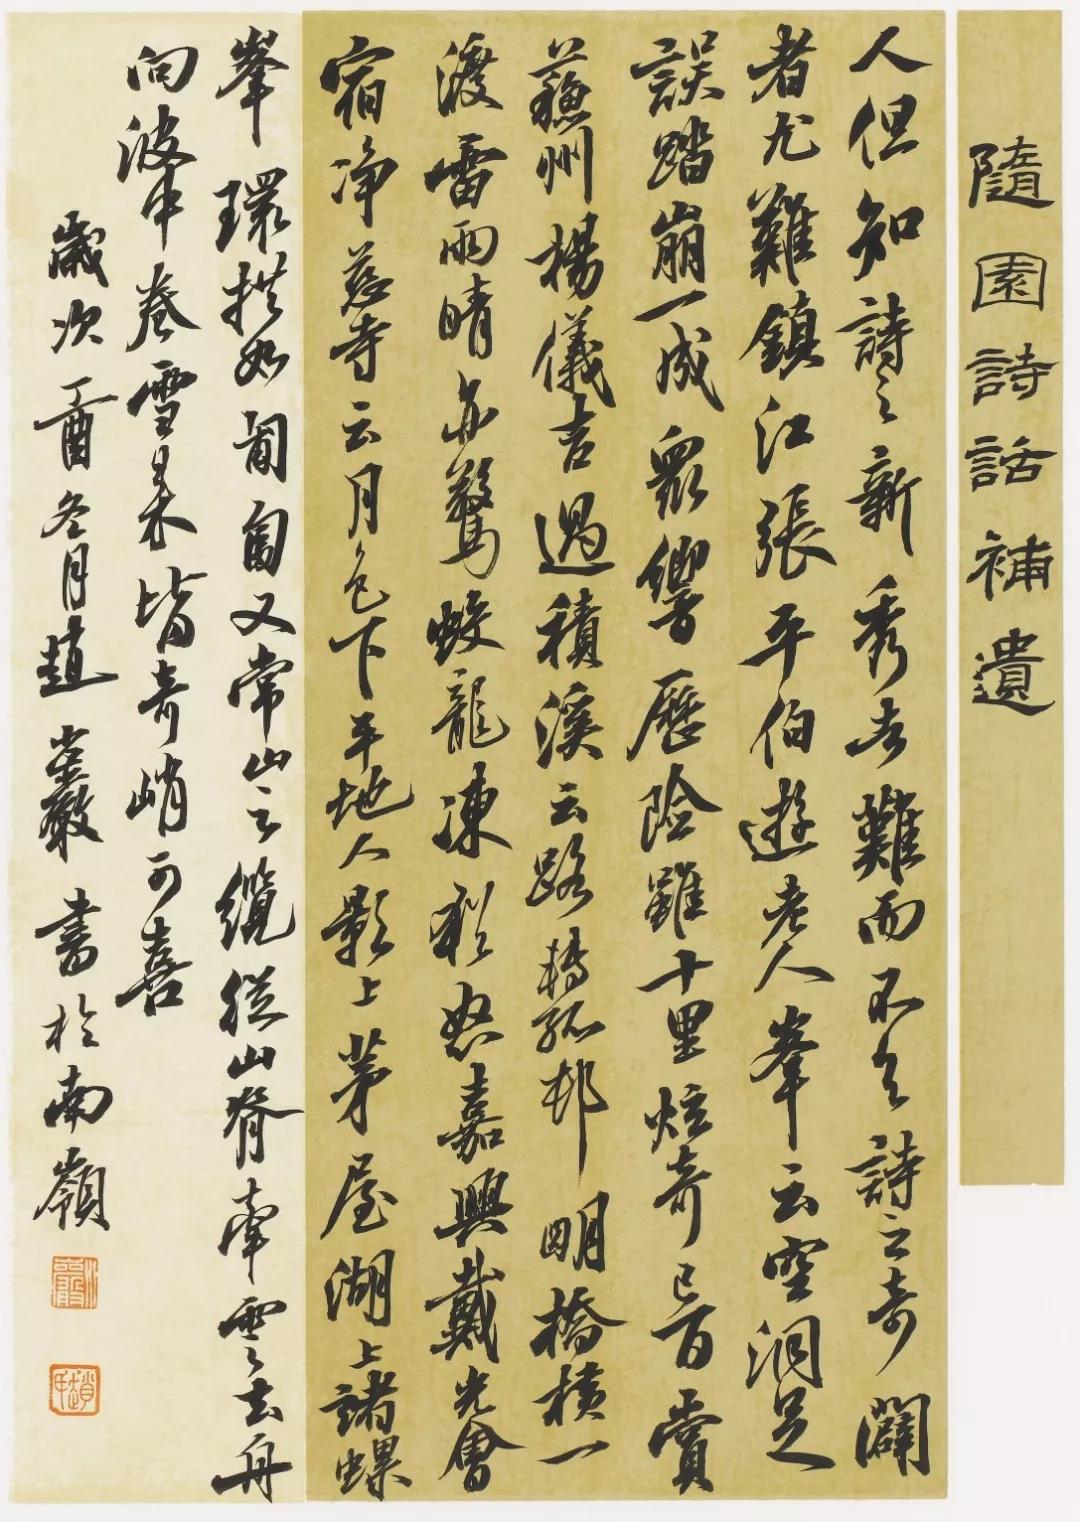 隨園詩話補遺
人但知詩之新秀者難而不知詩之奇闢
者尤難鎮江張平伯遊老人峯云空洞足
誤踏崩一成眾響歷險雖十里炫奇已百賞
蘇州楊儀吉過積溪云路轉孤邨明橋橫一
渡雷雨晴亦驚蛟龍凍猶怒嘉興戴光曾
宿净慈寺云月色下平地人影上茅屋湖上諸螺
峯環拱如匍匐又常山云纜從山脊牽雲去舟
向波中卷雪来皆奇峭可喜
歲次丁酉冬月趙巖書於南嶺
趙氏